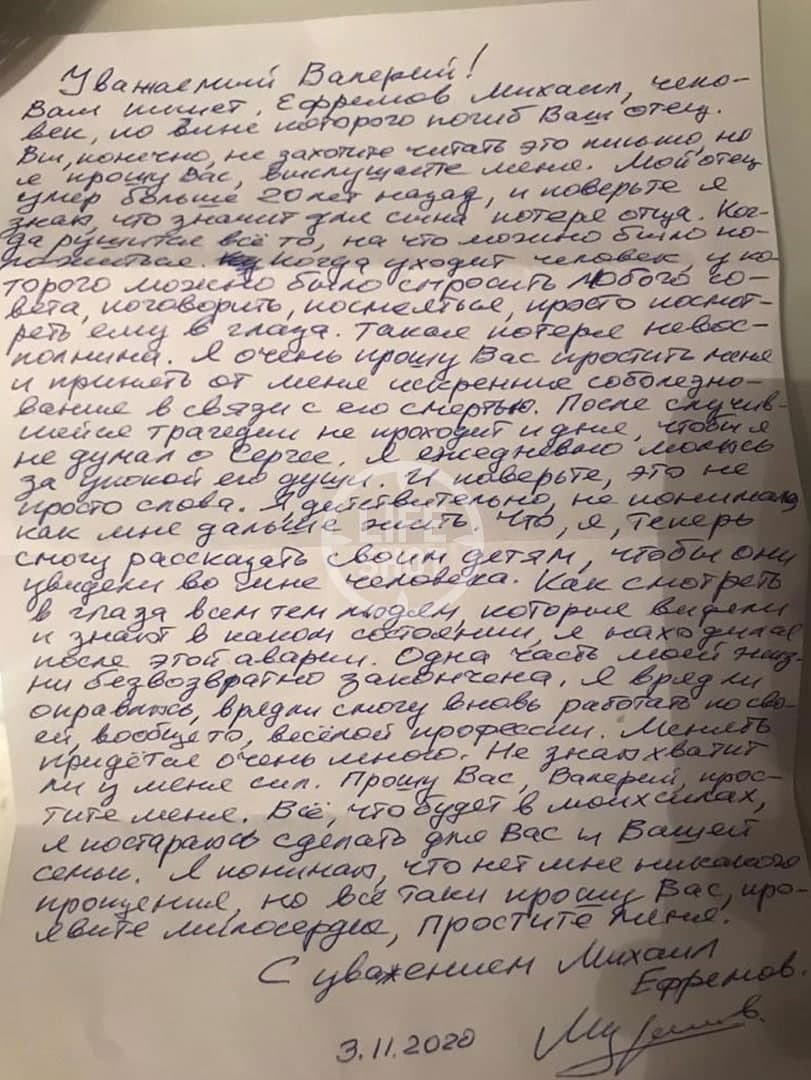 Уважаемый Валерий!
Вам пишет, Ефремов Михаил, чело-
век, по вине которого погиб Ваш отец.
Вы, конечно, не захотите читать это письмо, но
я прошу Вас, выслушайте меня. Мой отец
умер больше 20 лет назад, и поверьте я
знаю, что значит для сына потеря отца. Ког-
да рушится всё то, на что можно было по-
ложиться. Когда уходит человек, у ко-
торого можно было спросить любого со-
вета, поговорить, посмеяться, просто посмот-
реть ему в глаза. Такая потеря невос-
полнима. Я очень прошу Вас простить меня
и принять от меня искренние соболезно-
вания в связи с его смертью. После случив-
шейся трагедии не проходит и дня, чтобы я
не думал о Сергее. Я ежедневно молюсь
за упокой его души. И поверьте, это не
просто слова. Я действительно, не понимаю
как мне дальше жить. Что, я, теперь
смогу рассказать своим детям, чтобы они
увидели во мне человека. Как смотреть
в глаза всем тем людям, которые видели
и знают в каком состоянии, я находился
после этой аварии. Одна часть моей жиз-
ни безвозвратно закончена. Я вряд ли
оправлюсь, вряд ли смогу вновь работать по сво-
ей, вообще то, весёлой профессии. Менять
придётся очень много. Не знаю хватит
ли у меня сил. Прошу Вас, Валерий, прос-
тите меня. Всё, что будет в моих силах,
я постараюсь сделать для Вас и Вашей
семьи. Я понимаю, что нет мне никакого
прощения, но всё таки прошу Вас, про-
явите милосердие, простите меня.
С уважением Михаил
Ефремов.
3.11.2020
LIFE
SHOT